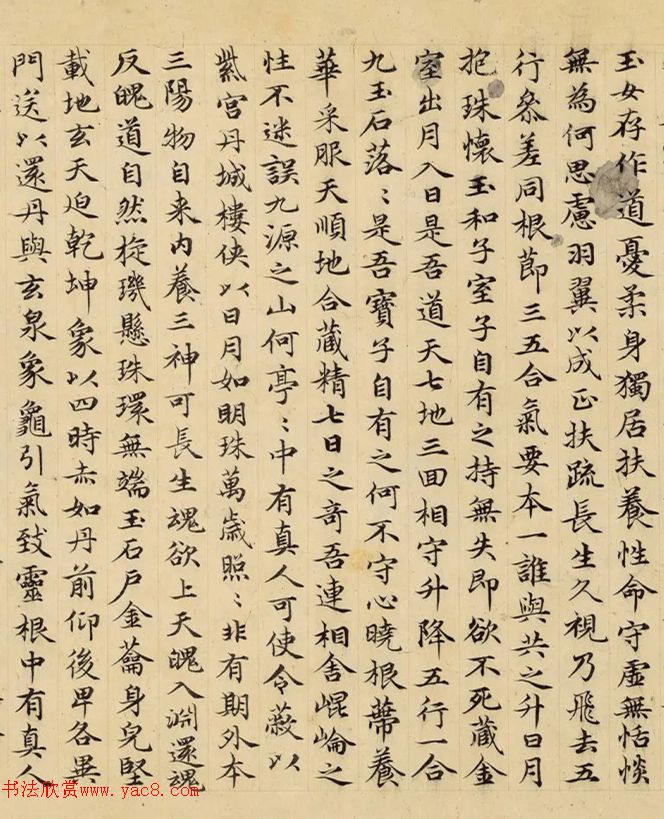 玉女存作道憂柔身獨居扶養性命守虛無恬惔
無為何思慮羽翼以成正扶疏長生久視乃飛去五
行叅差同根莭三五合氣要本一誰與共之升日月
抱珠懷玉和子室子自有之持無失即欲不死藏金
室出月入日是吾道天七地三回相守升降五行一合
九玉石落〻是吾寶子自有之何不守心曉根蔕養
華采服天順地合藏精七日之奇吾連相舍崐崘之
性不迷誤九源之山何亭〻中有真人可使令蔽以
紫宮丹城樓俠以日月如明珠萬歲照〻非有期外本
三陽物自来内養三神可長生魂欲上天魄入淵還魂
反魄道自然㨁璣懸珠環無端玉石戶金籥身皃堅
載地玄天迫乾坤象以四時赤如丹前仰後卑各異
門送以還丹與玄泉象龜引氣致靈根中有真人
书法欣赏www.yac8.com